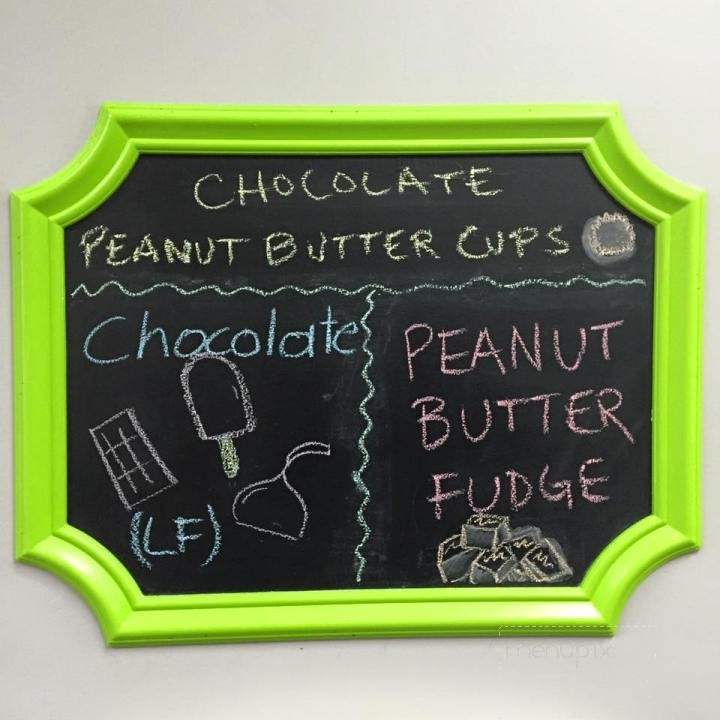 CHOCOLATE
PEANUT BUTTER CUPS
Chocolate
(LF)
PEANUT
BUTTER
FUDGE
menupix